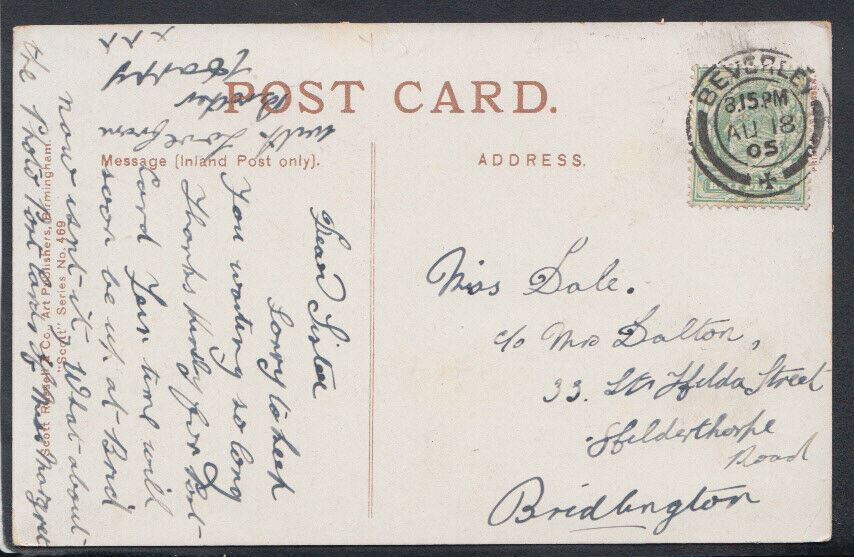 POST CARD.
Message (Inland Post only).
ADDRESS.
BEVERLEY
8.15.PM
AU 18
05
Miss Dale.
c/o Mrs Dalton,
33. St Hilda Street
Hilderthorpe
Road
Bridlington
Dear Sister
Sorry to keep
you waiting so long
Thanks kindly for Post-
Card Your time will
soon be up at Brid
now isnt it. What about
the Photo Post Cards of Miss
with love from
Brother
Harry
x x x
Scott Russell & Co., Art Publishers, Birmingham.
"Scott" Series No. 469